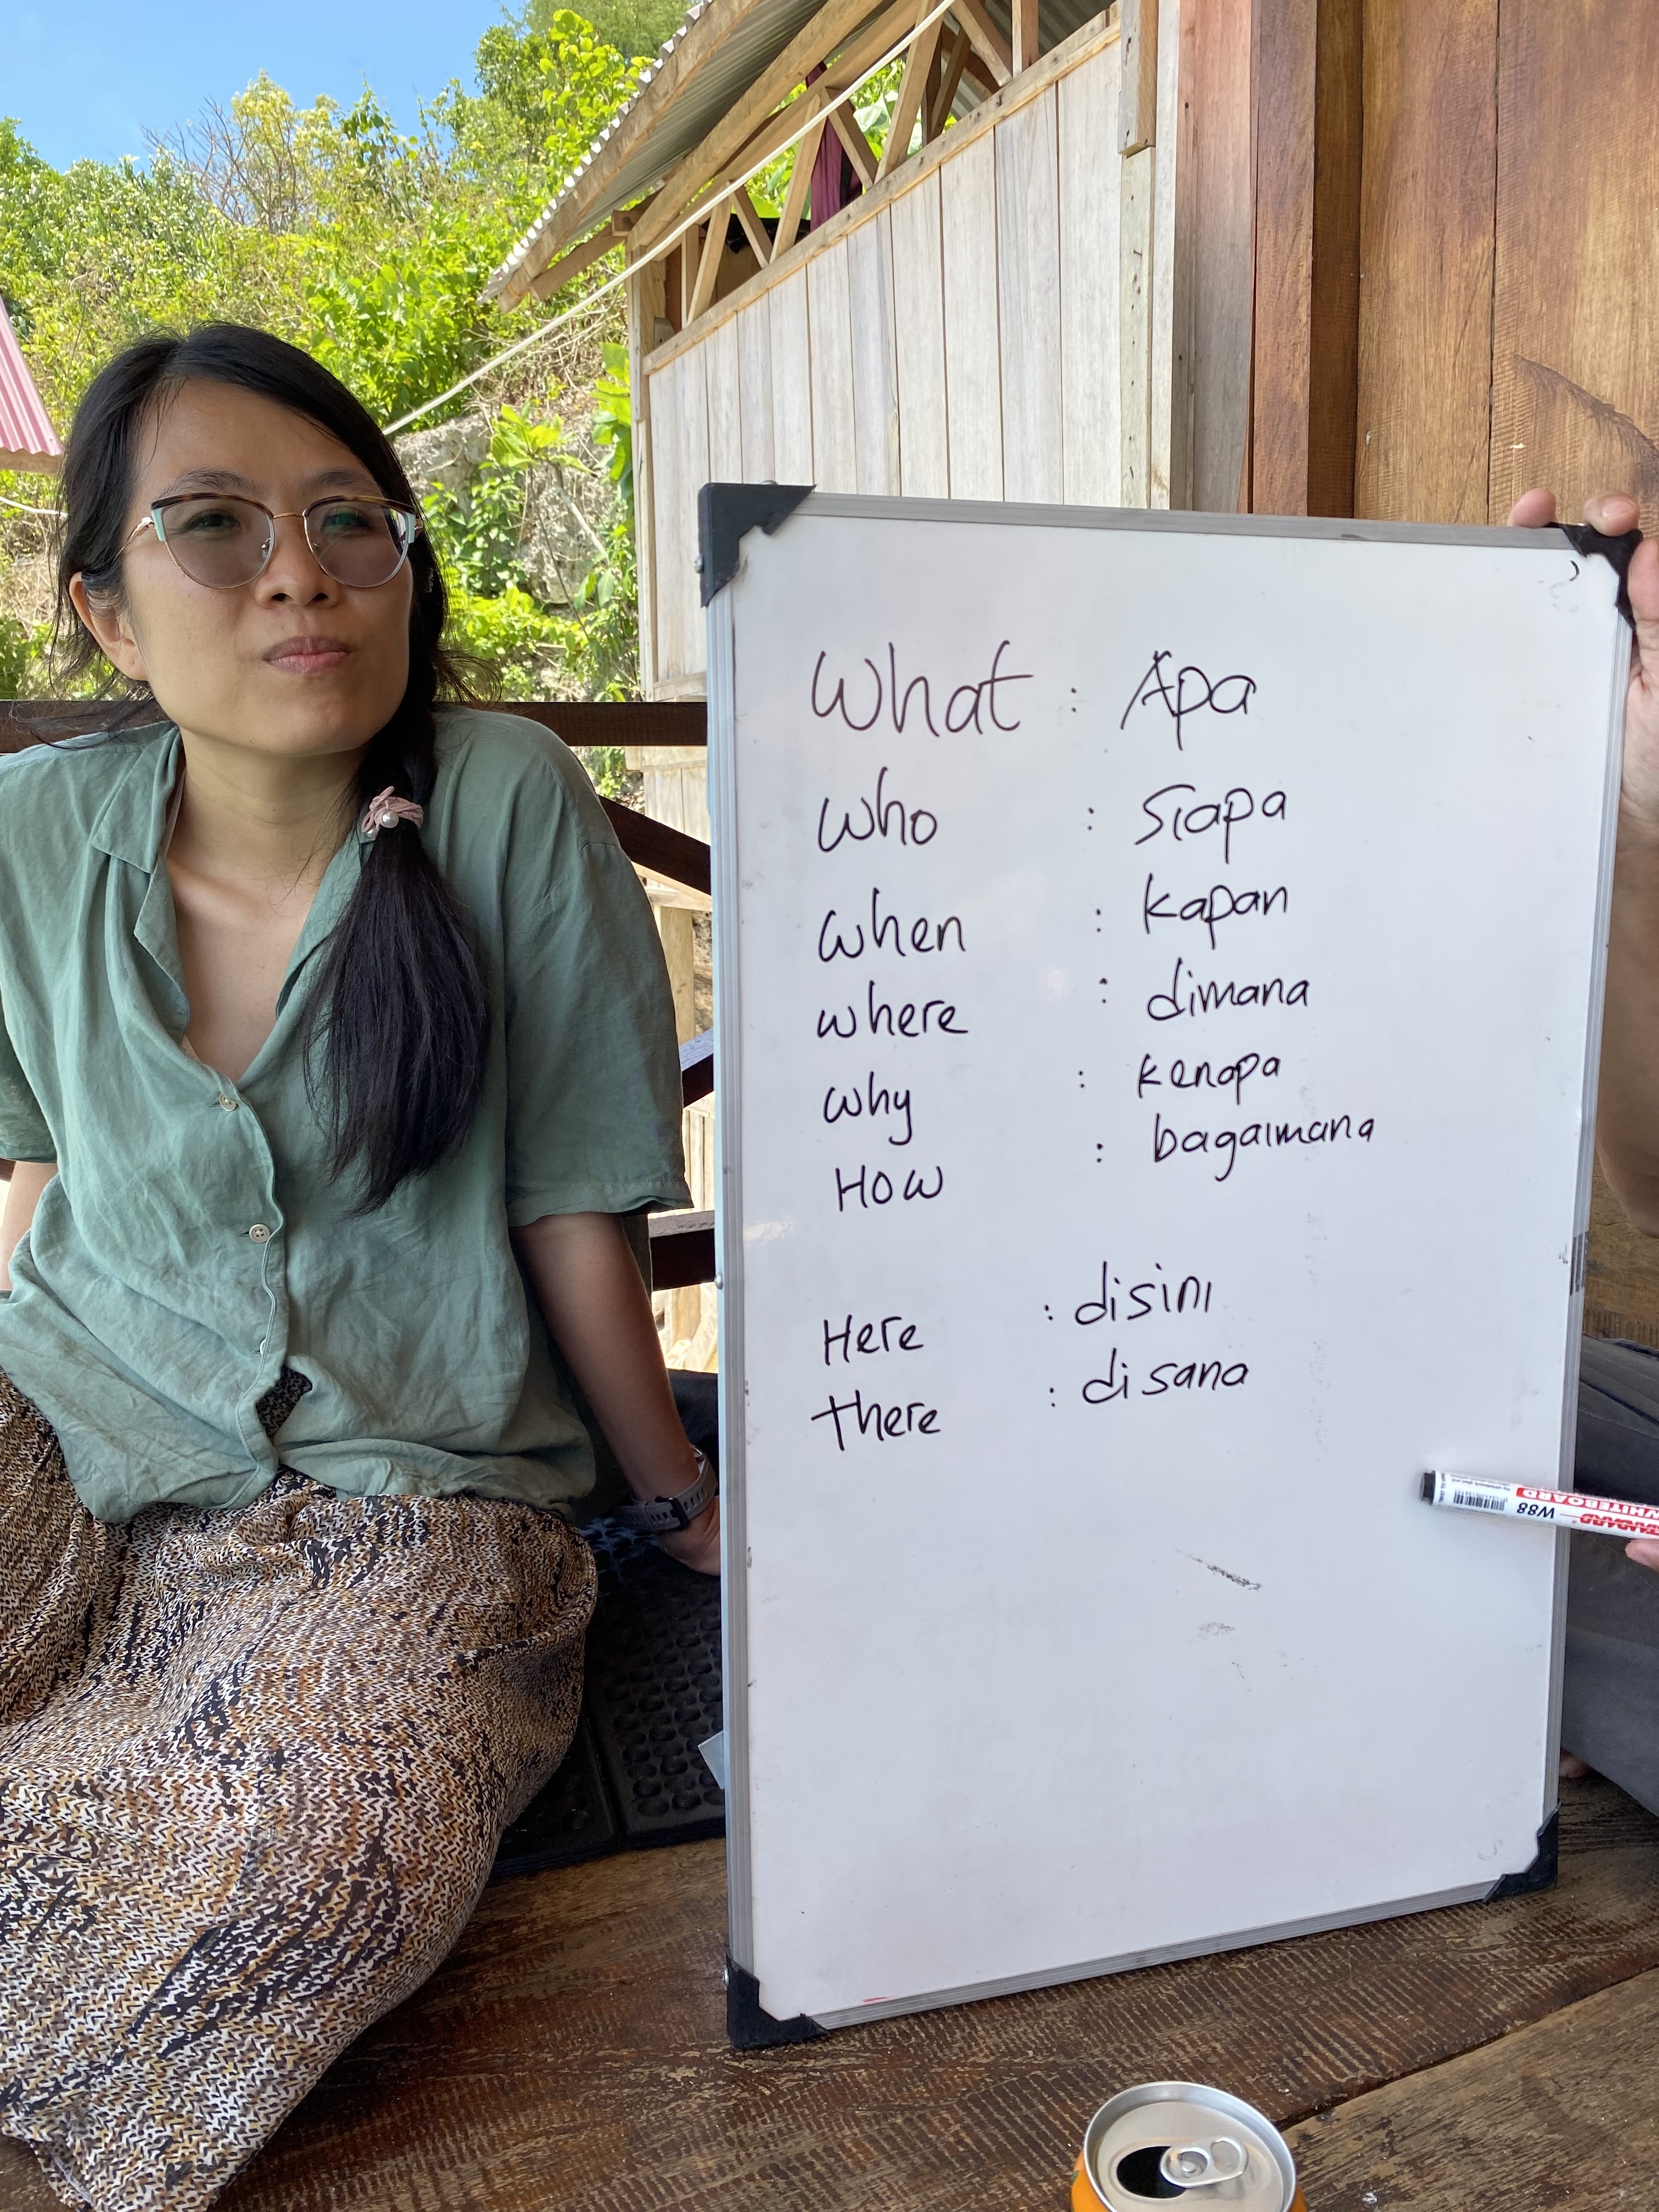 What : Apa
who : siapa
when : kapan
where : dimana
why : kenapa
How : bagaimana
Here : disini
there : disana
STANDARD
WHITEBOARD
W88